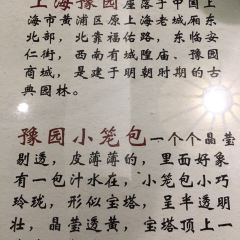 上海豫园座落于中国上
海市黄浦区原上海老城厢东
北部，北靠福佑路，东临安
仁街，西南有城隍庙、豫园
商城，是建于明朝时期的古
典园林。
豫园小笼包一个个晶莹
剔透，皮薄薄的，里面好象
有一包汁水在，小笼包小巧
玲珑，形似宝塔，呈半透明
壮，晶莹透黄，宝塔顶上一